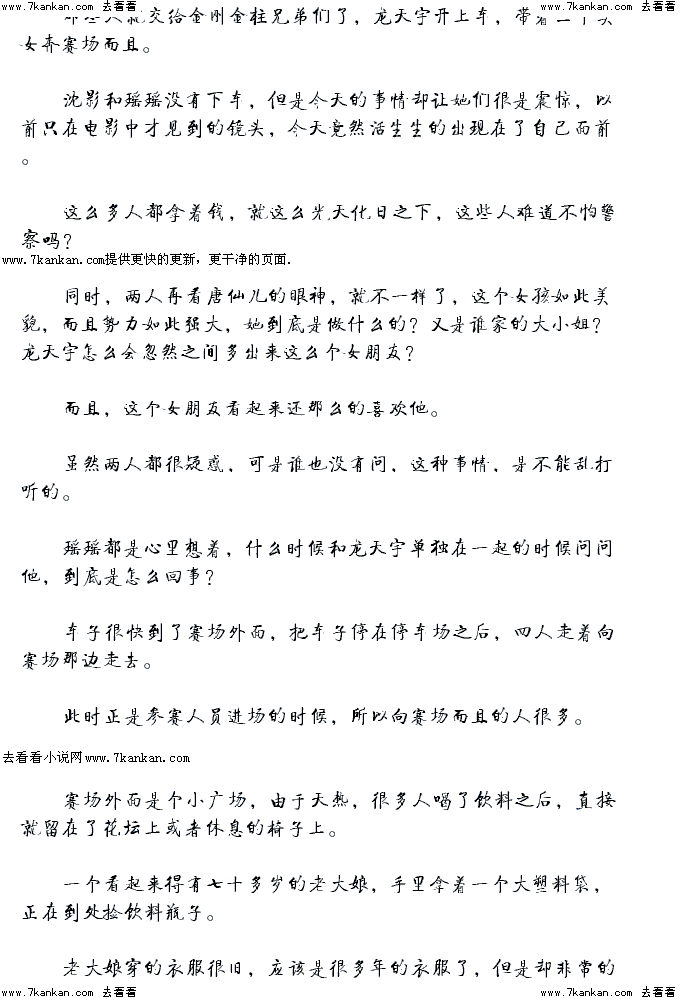 www.7kankan.com 去看看 www.7kankan.com 去看看 www.7kankan.com 去看看
就交给金刚金柱兄弟们了，龙天宇开上车，带着三个美
女奔赛场而且。
沈影和瑶瑶没有下车，但是今天的事情却让她们很是震惊，以
前只在电影中才见到的镜头，今天竟然活生生的出现在了自己面前
。
这么多人都拿着钱，就这么光天化日之下，这些人难道不怕警
察吗？
www.7kankan.com提供更快的更新，更干净的页面.
同时，两人再看唐仙儿的眼神，就不一样了，这个女孩如此美
貌，而且势力如此强大，她到底是做什么的？又是谁家的大小姐？
龙天宇怎么会忽然之间多出来这么个女朋友？
而且，这个女朋友看起来还那么的喜欢他。
虽然两人都很疑惑，可是谁也没有问，这种事情，是不能乱打
听的。
瑶瑶都是心里想着，什么时候和龙天宇单独在一起的时候问问
他，到底是怎么回事？
车子很快到了赛场外面，把车子停在停车场之后，四人走着向
赛场那边走去。
此时正是参赛人员进场的时候，所以向赛场而且的人很多。
去看看小说网www.7kankan.com
赛场外面是个小广场，由于天热，很多人喝了饮料之后，直接
就留在了花坛上或者休息的椅子上。
一个看起来得有七十多岁的老大娘，手里拿着一个大塑料袋，
正在到处捡饮料瓶子。
老大娘穿的衣服很旧，应该是很多年的衣服了，但是却非常的
www.7kankan.com 去看看 www.7kankan.com 去看看 www.7kankan.com 去看看